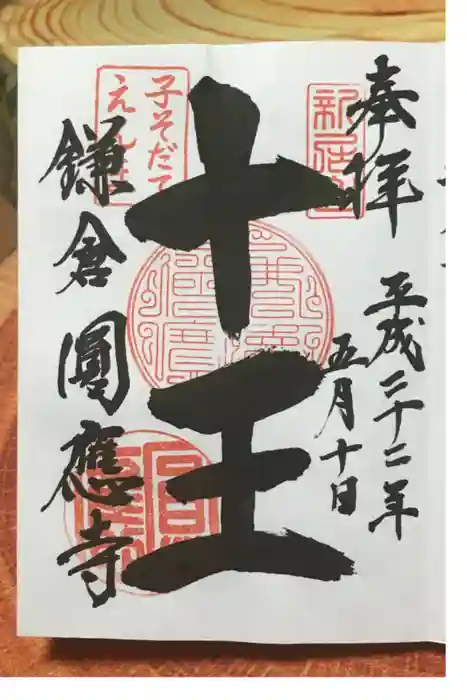 奉拝
平成二十二年
五月十日
十王
子そだて
えんま
鎌倉圓應寺
新居山